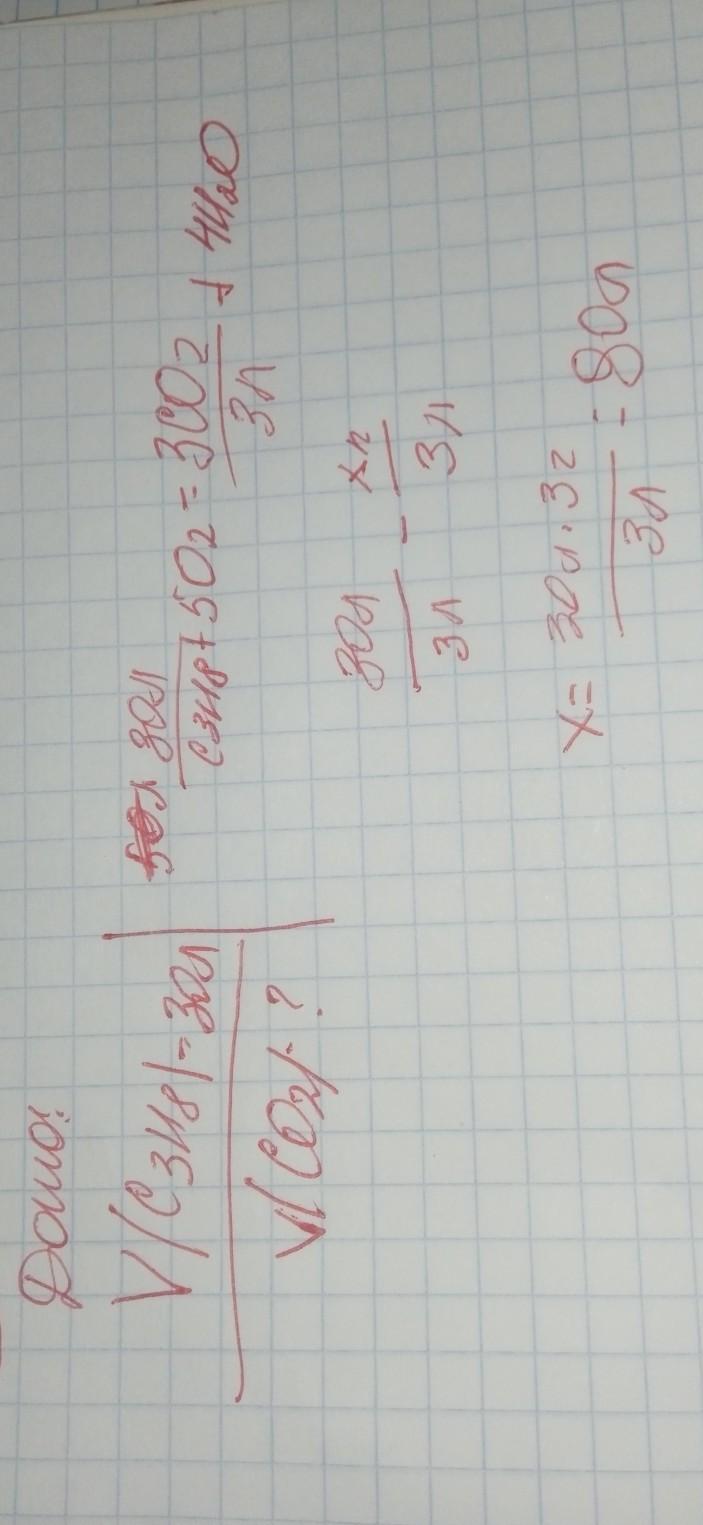 Дано:
V(C3H8)=30л
V(CO2)-?
30л
C3H8+5O2=3CO2+4H2O
3л
30л - xл
3л 3л
x= 30л·3г = 90л
3л